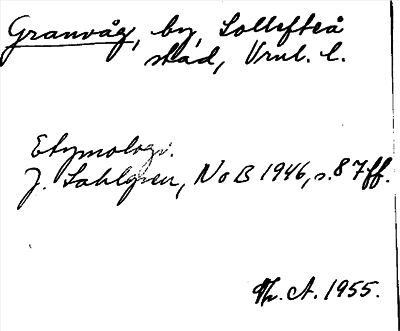 Granvåg, by, Sollefteå
stad, Vnl. l.
Etymologi.
J. Sahlgren, NoB 1946, s. 87 ff.
Th. A. 1955.